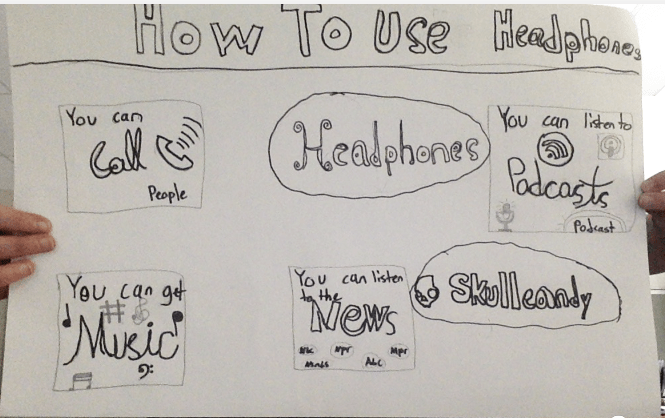 How To Use Headphones
You can
Call
People
Headphones
You can listen to
Podcasts
Podcast
You can get
Music
You can listen
to the
News
Nbc Npr Mpr
Abc
Skullcandy